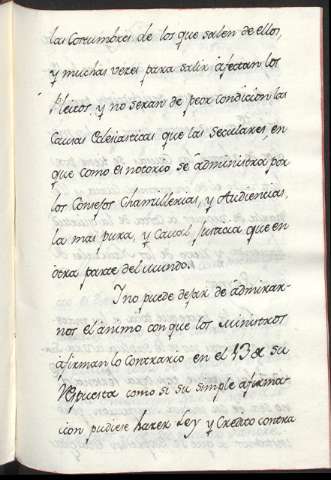 las Costumbres de los que salen de ellos,
y muchas vezes para salir afectan los
Pleitos y no seran de peor condicion las
Causas Eclesiasticas que las seculares, en
que como es notorio se administra por
los Consejos Chanzillerias, y Audiencias,
la mas pura, y Caval Justicia que en
otra parte del mundo.
Y no puede dejar de admirar-
nos el animo con que los Ministros
afirman lo Contrario en el 13 de su
Respuesta como si su simple afirma-
cion pudiese hazer Ley y Credito contra